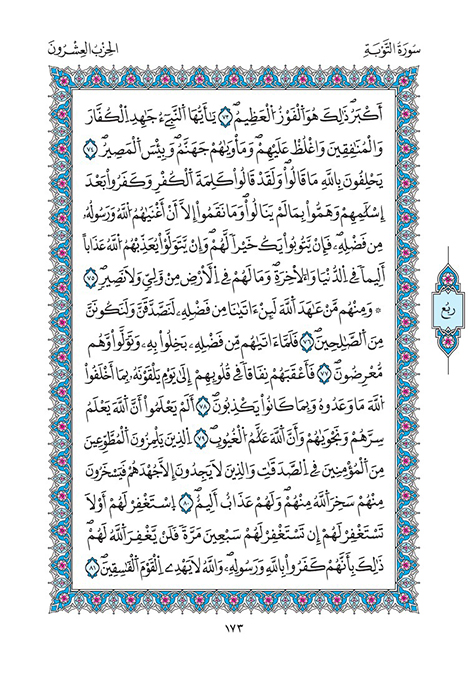 سُورَةُ التَّوْبَةِ
الحِزْبُ العِشْرُونَ
أَكْبَرُۖ ذَٰلِكَ هُوَ اَ۬لْفَوْزُ اُ۬لْعَظِيمُۖ ٧٣ يَٰٓأَيُّهَا اَ۬لنَّبِےٓءُ جَٰهِدِ اِ۬لْكُفَّارَ
وَالْمُنَٰفِقِينَ وَاغْلُظْ عَلَيْهِمْۖ وَمَأْو۪يٰهُمْ جَهَنَّمُۖ وَبِيسَ اَ۬لْمَصِيرُۖ ٧٤
يَحْلِفُونَ بِاللَّهِ مَا قَالُواْۖ وَلَقَدْ قَالُواْ كَلِمَةَ اَ۬لْكُفْرِ وَكَفَرُواْ بَعْدَ
إِسْلَٰمِهِمْ وَهَمُّواْ بِمَا لَمْ يَنَالُواْۖ وَمَا نَقَمُوٓاْ إِلَّآ أَنَ اَغْن۪يٰهُمُ اُ۬للَّهُ وَرَسُولُهُۥ
مِن فَضْلِهِۦۖ فَإِنْ يَّتُوبُواْ يَكُ خَيْراٗ لَّهُمْۖ وَإِنْ يَّتَوَلَّوْاْ يُعَذِّبْهُمُ اُ۬للَّهُ عَذَاباً
اَلِيماٗ فِے اِ۬لدُّنْي۪ا وَالَاخِرَةِۖ وَمَا لَهُمْ فِے اِ۬لَارْضِ مِنْ وَّلِيّٖ وَلَا نَصِيرٖۖ ٧٥
۞ وَمِنْهُم مَّنْ عَٰهَدَ اَ۬للَّهَ لَئِنَ اٰت۪يٰنَا مِن فَضْلِهِۦ لَنَصَّدَّقَنَّ وَلَنَكُونَنَّ
مِنَ اَ۬لصَّٰلِحِينَۖ ٧٦ فَلَمَّآ ءَات۪يٰهُم مِّن فَضْلِهِۦ بَخِلُواْ بِهِۦ وَتَوَلَّواْ وَّهُم
مُّعْرِضُونَۖ ٧٧ فَأَعْقَبَهُمْ نِفَاقاٗ فِے قُلُوبِهِمُۥٓ إِلَىٰ يَوْمِ يَلْقَوْنَهُۥ بِمَآ أَخْلَفُواْ
اُ۬للَّهَ مَا وَعَدُوهُ وَبِمَا كَانُواْ يَكْذِبُونَۖ ٧٨ أَلَمْ يَعْلَمُوٓاْ أَنَّ اَ۬للَّهَ يَعْلَمُ
سِرَّهُمْ وَنَجْو۪يٰهُمْ وَأَنَّ اَ۬للَّهَ عَلَّٰمُ اُ۬لْغُيُوبِۖ ٧٩ اِ۬لذِينَ يَلْمِزُونَ اَ۬لْمُطَّوِّعِينَ
مِنَ اَ۬لْمُؤْمِنِينَ فِے اِ۬لصَّدَقَٰتِ وَالذِينَ لَا يَجِدُونَ إِلَّا جُهْدَهُمْ فَيَسْخَرُونَ
مِنْهُمْ سَخِرَ اَ۬للَّهُ مِنْهُمْۖ وَلَهُمْ عَذَابٌ اَلِيمٌۖ ٨٠ اِ۪سْتَغْفِرْ لَهُمُۥٓ أَوْ لَا
تَسْتَغْفِرْ لَهُمُۥٓ إِن تَسْتَغْفِرْ لَهُمْ سَبْعِينَ مَرَّةٗ فَلَنْ يَّغْفِرَ اَ۬للَّهُ لَهُمْۖ
ذَٰلِكَ بِأَنَّهُمْ كَفَرُواْ بِاللَّهِ وَرَسُولِهِۦۖ وَاللَّهُ لَا يَهْدِے اِ۬لْقَوْمَ اَ۬لْفَٰسِقِينَۖ ٨١
ربع
١٧٣